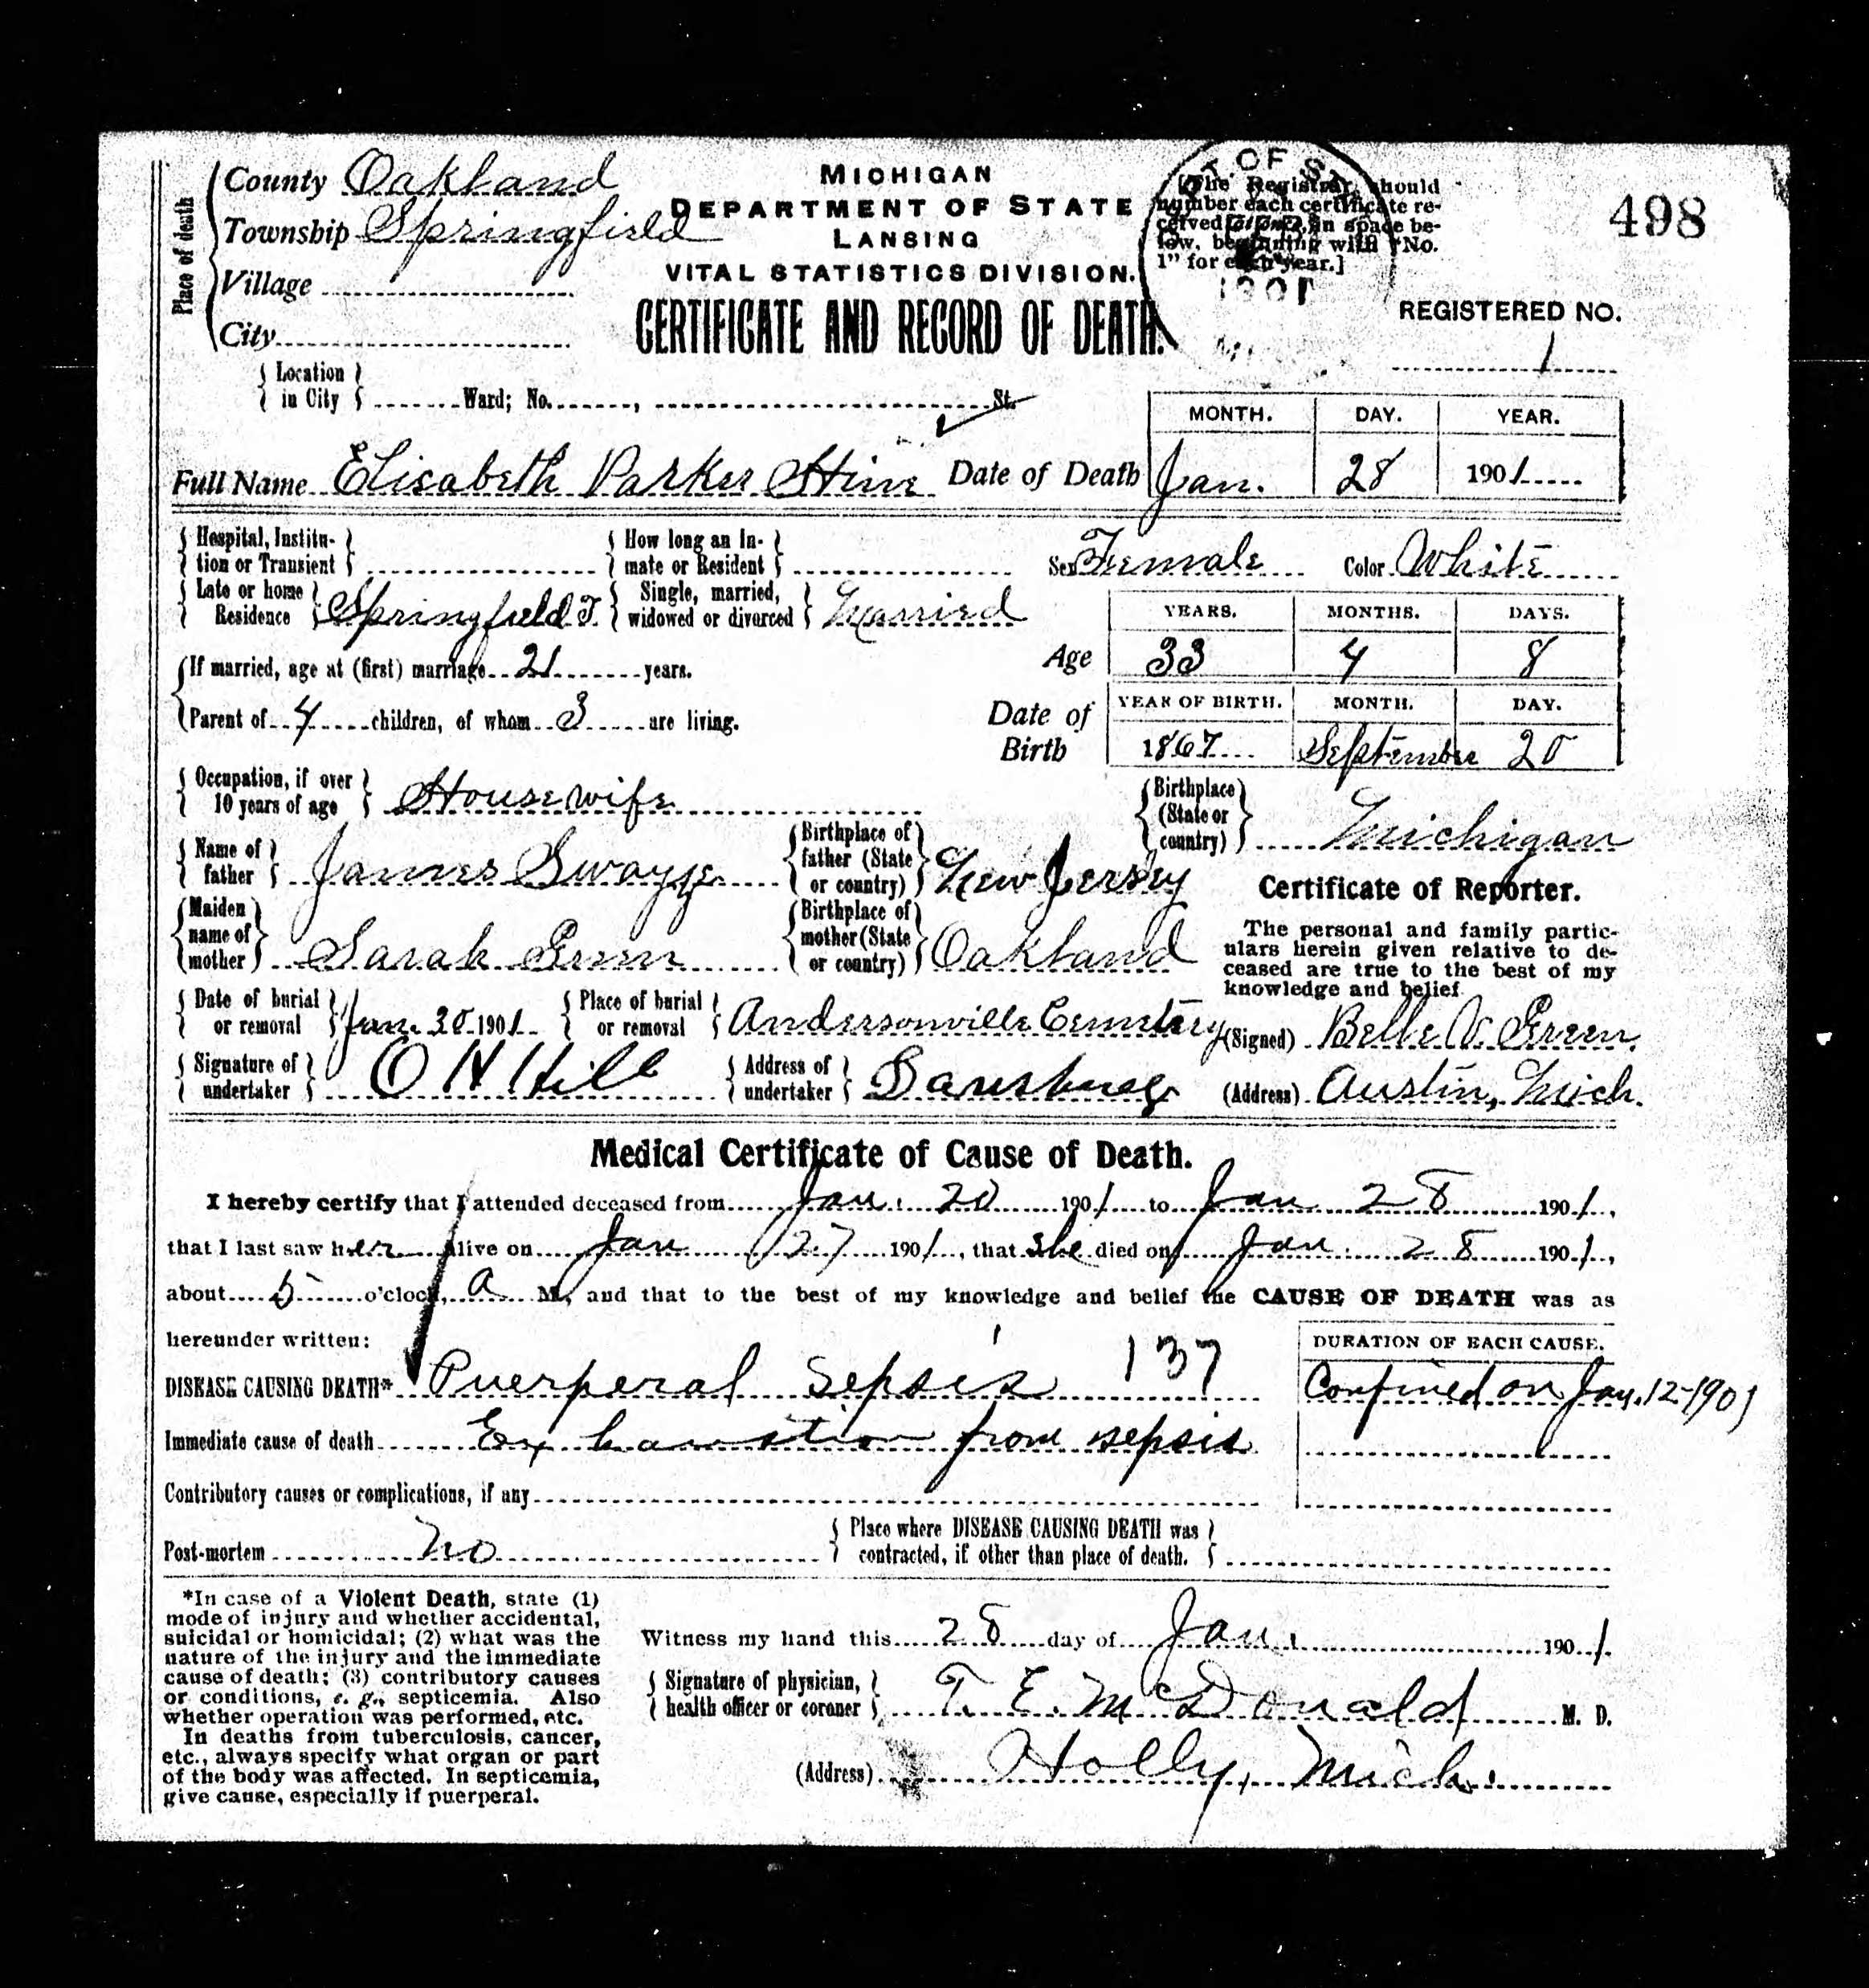 Place of death
County Oakland
Township Springfield
Village
City
Location in City Ward; No. , St.
MICHIGAN
DEPARTMENT OF STATE
LANSING
VITAL STATISTICS DIVISION.
CERTIFICATE AND RECORD OF DEATH.
[The Registrar should
number each certificate re-
ceived in space be-
low, beginning with "No.
1" for each year.]
1901
498
REGISTERED NO.
1
Full Name Elisabeth Parker Stine Date of Death
MONTH. DAY. YEAR.
Jan. 28 1901
Hospital, Institu- tion or Transient How long an In- mate or Resident Sex Female Color White
Late or home Residence Springfield T. Single, married, widowed or divorced Married
If married, age at (first) marriage 21 years.
Parent of 4 children, of whom 3 are living.
Age
YEARS. MONTHS. DAYS.
33 4 8
Date of Birth
YEAR OF BIRTH. MONTH. DAY.
1867 September 20
Occupation, if over 10 years of age Housewife
Birthplace (State or country) Michigan
Name of father James Swayze Birthplace of father (State or country) New Jersey
Maiden name of mother Sarah Green Birthplace of mother (State or country) Oakland
Certificate of Reporter.
The personal and family partic-
ulars herein given relative to de-
ceased are true to the best of my
knowledge and belief
Date of burial or removal Jan. 30 1901 Place of burial or removal Andersonville Cemetery
(Signed) Belle V. Green.
Signature of undertaker O H Hill Address of undertaker Davisburg
(Address) Austin, Mich.
Medical Certificate of Cause of Death.
I hereby certify that I attended deceased from Jan. 20 1901 to Jan 28 1901,
that I last saw her alive on Jan 27 1901, that she died on Jan. 28 1901,
about 5 o'clock, a M., and that to the best of my knowledge and belief the CAUSE OF DEATH was as
hereunder written:
DURATION OF EACH CAUSE.
DISEASE CAUSING DEATH* Puerperal Sepsis 137 Confined on Jan. 12-1901
Immediate cause of death Exhaustion from sepsis
Contributory causes or complications, if any
Post-mortem no Place where DISEASE CAUSING DEATH was contracted, if other than place of death.
*In case of a Violent Death, state (1)
mode of injury and whether accidental,
suicidal or homicidal; (2) what was the
nature of the injury and the immediate
cause of death; (3) contributory causes
or conditions, e. g., septicemia. Also
whether operation was performed, etc.
In deaths from tuberculosis, cancer,
etc., always specify what organ or part
of the body was affected. In septicemia,
give cause, especially if puerperal.
Witness my hand this 28 day of Jan. 1901.
Signature of physician, health officer or coroner T. E. McDonald M. D.
(Address) Holly, Mich.